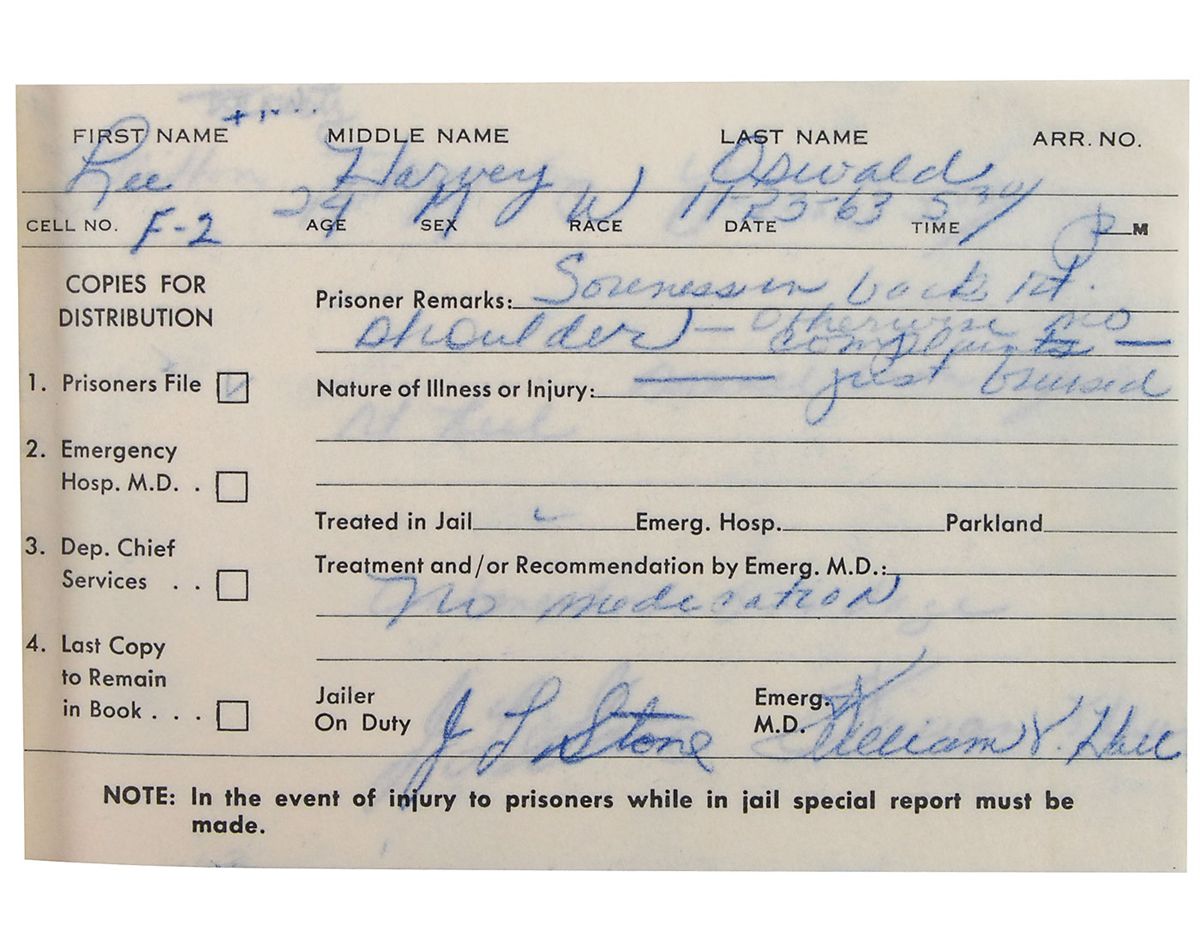 FIRST NAME MIDDLE NAME LAST NAME ARR. NO.
Lee Harvey Oswald
24 M W 11-23-63 5 30/ P
CELL NO. F-2 AGE SEX RACE DATE TIME M
COPIES FOR
DISTRIBUTION
1. Prisoners File
2. Emergency
Hosp. M.D. . .
3. Dep. Chief
Services . .
4. Last Copy
to Remain
in Book . . .
Prisoner Remarks: Soreness in back rt.
shoulder — otherwise no
complaints —
Nature of Illness or Injury: — just bruised
Treated in Jail Emerg. Hosp. Parkland
Treatment and/or Recommendation by Emerg. M.D.:
No medication
Jailer
On Duty J L Stone
Emerg.
M.D. William V. Hall
NOTE: In the event of injury to prisoners while in jail special report must be
made.